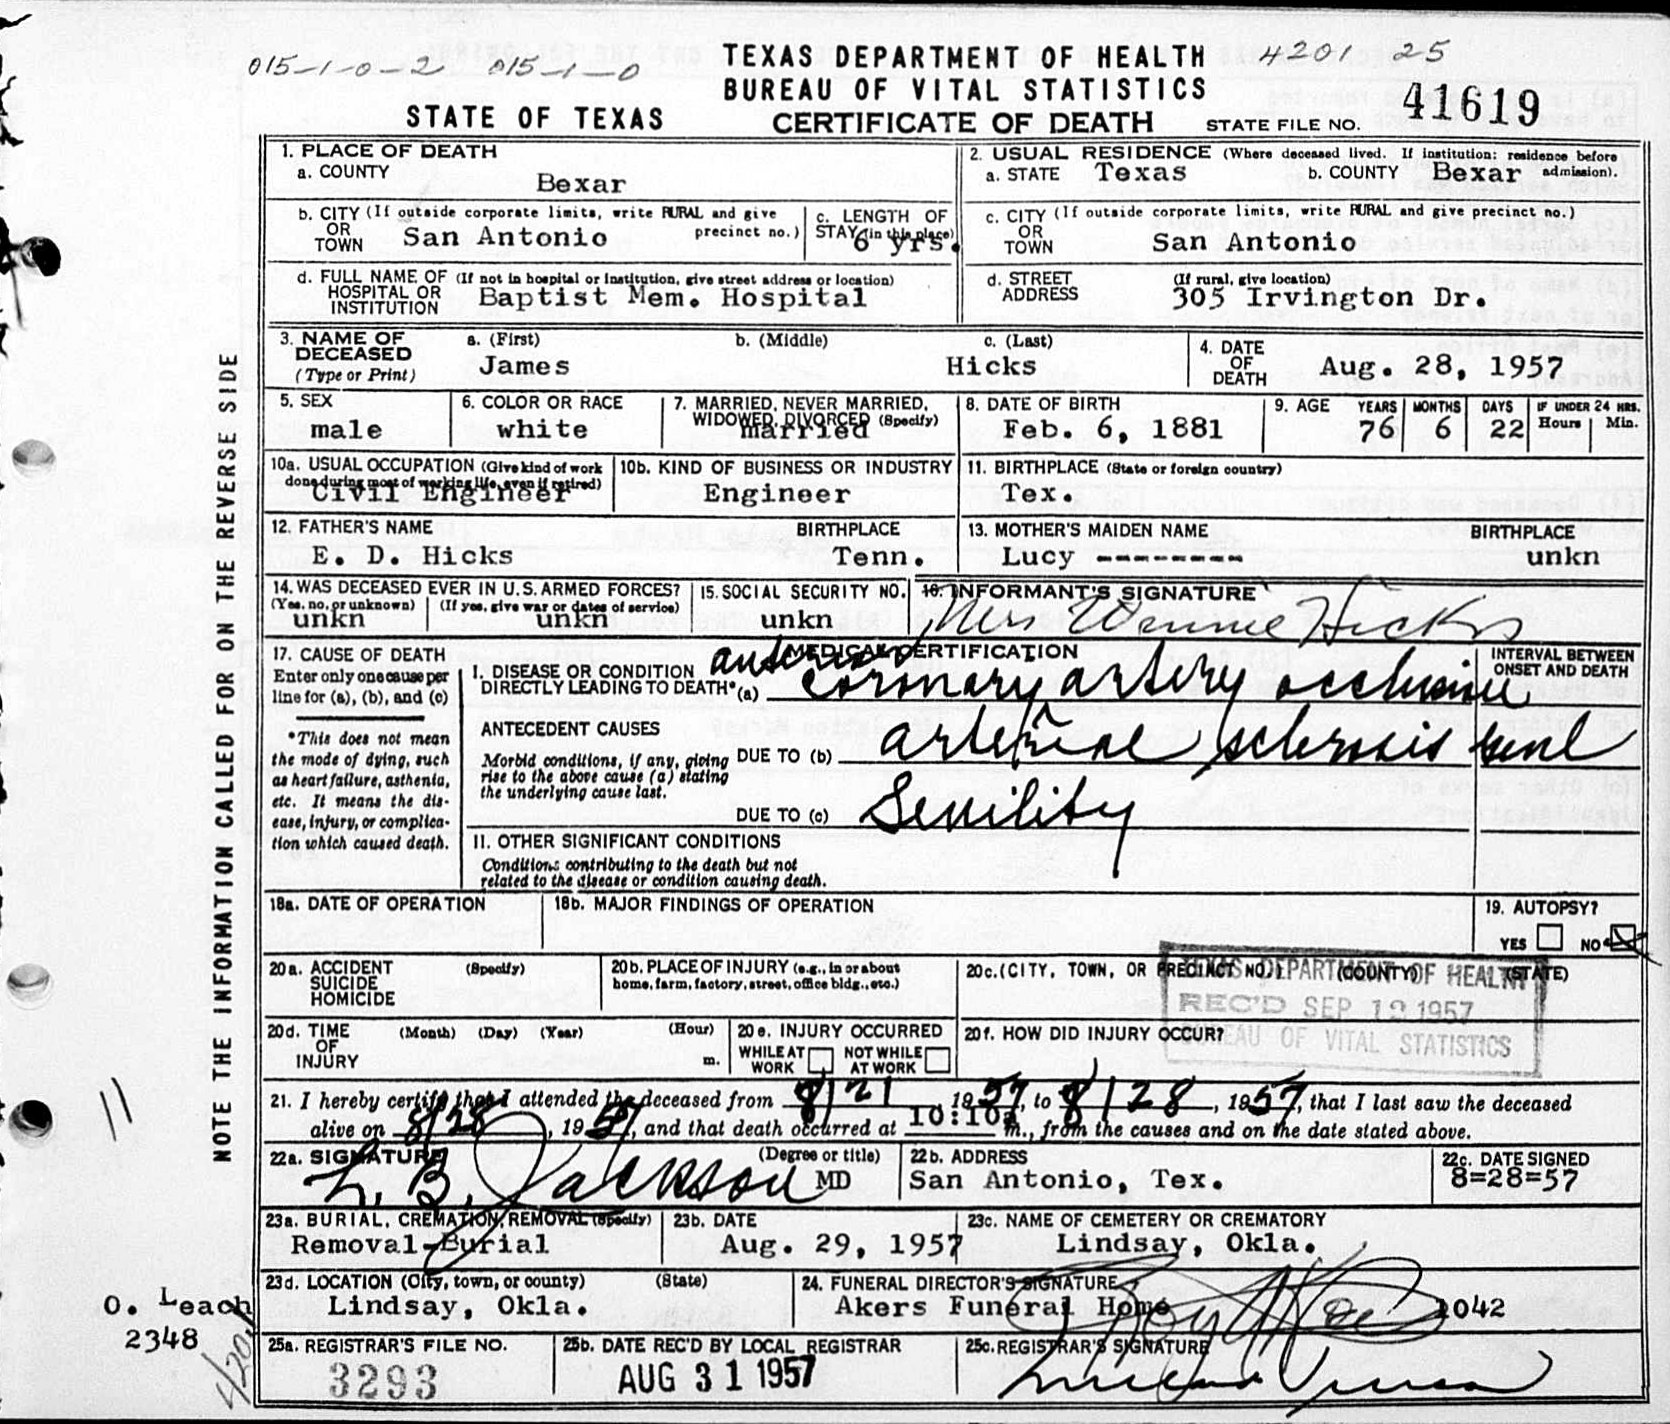 015-1-0-2 015-1-0
TEXAS DEPARTMENT OF HEALTH 4201 25
BUREAU OF VITAL STATISTICS
STATE OF TEXAS CERTIFICATE OF DEATH STATE FILE NO. 41619
1. PLACE OF DEATH
a. COUNTY Bexar
2. USUAL RESIDENCE (Where deceased lived. If institution: residence before admission).
a. STATE Texas b. COUNTY Bexar
b. CITY (If outside corporate limits, write RURAL and give precinct no.)
OR TOWN San Antonio
c. LENGTH OF STAY (in this place) 6 yrs.
c. CITY (If outside corporate limits, write RURAL and give precinct no.)
OR TOWN San Antonio
d. FULL NAME OF HOSPITAL OR INSTITUTION (If not in hospital or institution, give street address or location)
Baptist Mem. Hospital
d. STREET ADDRESS (If rural, give location)
305 Irvington Dr.
3. NAME OF DECEASED (Type or Print)
a. (First) b. (Middle) c. (Last)
James Hicks
4. DATE OF DEATH Aug. 28, 1957
5. SEX male
6. COLOR OR RACE white
7. MARRIED, NEVER MARRIED, WIDOWED, DIVORCED (Specify) married
8. DATE OF BIRTH Feb. 6, 1881
9. AGE YEARS 76 MONTHS 6 DAYS 22 IF UNDER 24 HRS. Hours Min.
10a. USUAL OCCUPATION (Give kind of work done during most of working life, even if retired)
Civil Engineer
10b. KIND OF BUSINESS OR INDUSTRY
Engineer
11. BIRTHPLACE (State or foreign country)
Tex.
12. FATHER'S NAME BIRTHPLACE
E. D. Hicks Tenn.
13. MOTHER'S MAIDEN NAME BIRTHPLACE
Lucy -------- unkn
14. WAS DECEASED EVER IN U.S. ARMED FORCES?
(Yes, no, or unknown) (If yes, give war or dates of service)
unkn unkn
15. SOCIAL SECURITY NO.
unkn
16. INFORMANT'S SIGNATURE
Mrs Winnie Hicks
17. CAUSE OF DEATH
Enter only one cause per line for (a), (b), and (c)
*This does not mean the mode of dying, such as heart failure, asthenia, etc. It means the disease, injury, or complication which caused death.
MEDICAL CERTIFICATION
INTERVAL BETWEEN ONSET AND DEATH
I. DISEASE OR CONDITION DIRECTLY LEADING TO DEATH* (a) anterior coronary artery occlusion
ANTECEDENT CAUSES
Morbid conditions, if any, giving rise to the above cause (a) stating the underlying cause last.
DUE TO (b) arterial sclerosis
DUE TO (c) Senility
II. OTHER SIGNIFICANT CONDITIONS
Conditions contributing to the death but not related to the disease or condition causing death.
18a. DATE OF OPERATION
18b. MAJOR FINDINGS OF OPERATION
19. AUTOPSY?
YES NO X
20a. ACCIDENT SUICIDE HOMICIDE (Specify)
20b. PLACE OF INJURY (e.g., in or about home, farm, factory, street, office bldg., etc.)
20c. (CITY, TOWN, OR PRECINCT NO.) (COUNTY) (STATE)
TEXAS DEPARTMENT OF HEALTH
REC'D SEP 12 1957
BUREAU OF VITAL STATISTICS
20d. TIME OF INJURY (Month) (Day) (Year) (Hour) m.
20e. INJURY OCCURRED
WHILE AT WORK NOT WHILE AT WORK
20f. HOW DID INJURY OCCUR?
21. I hereby certify that I attended the deceased from 8/21 1957, to 8/28, 1957, that I last saw the deceased
alive on 8/28, 1957, and that death occurred at 10:10a m., from the causes and on the date stated above.
22a. SIGNATURE (Degree or title)
L. B. Jackson MD
22b. ADDRESS
San Antonio, Tex.
22c. DATE SIGNED
8=28=57
23a. BURIAL, CREMATION, REMOVAL (Specify)
Removal-Burial
23b. DATE
Aug. 29, 1957
23c. NAME OF CEMETERY OR CREMATORY
Lindsay, Okla.
23d. LOCATION (City, town, or county) (State)
Lindsay, Okla.
24. FUNERAL DIRECTOR'S SIGNATURE
Akers Funeral Home 2042
25a. REGISTRAR'S FILE NO.
3293
25b. DATE REC'D BY LOCAL REGISTRAR
AUG 31 1957
25c. REGISTRAR'S SIGNATURE
NOTE THE INFORMATION CALLED FOR ON THE REVERSE SIDE
11
O. Leach
2348
4201